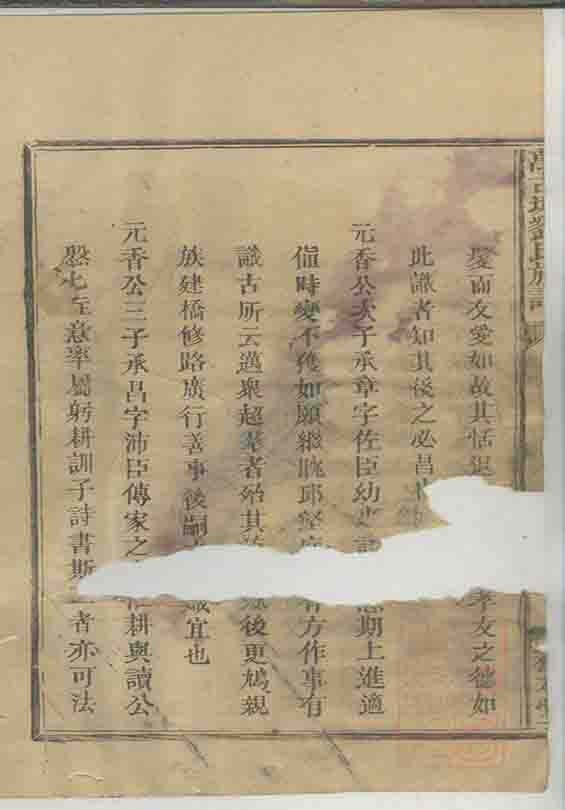 劉氏族譜
變而友愛如故其恬退 孝友之德如
此識者知其後之必昌
元香公次子承章字佐臣幼 期上進適
值時變不獲如願繼眺邱壑 有方作事有
識古所云邁衆超羣者殆其 後更鳩親
族建橋修路廣行善事後嗣 宜也
元香公三子承昌字沛臣傳家之 耕與讀公
慇七在意率屬躬耕訓子詩書斯 者亦可法